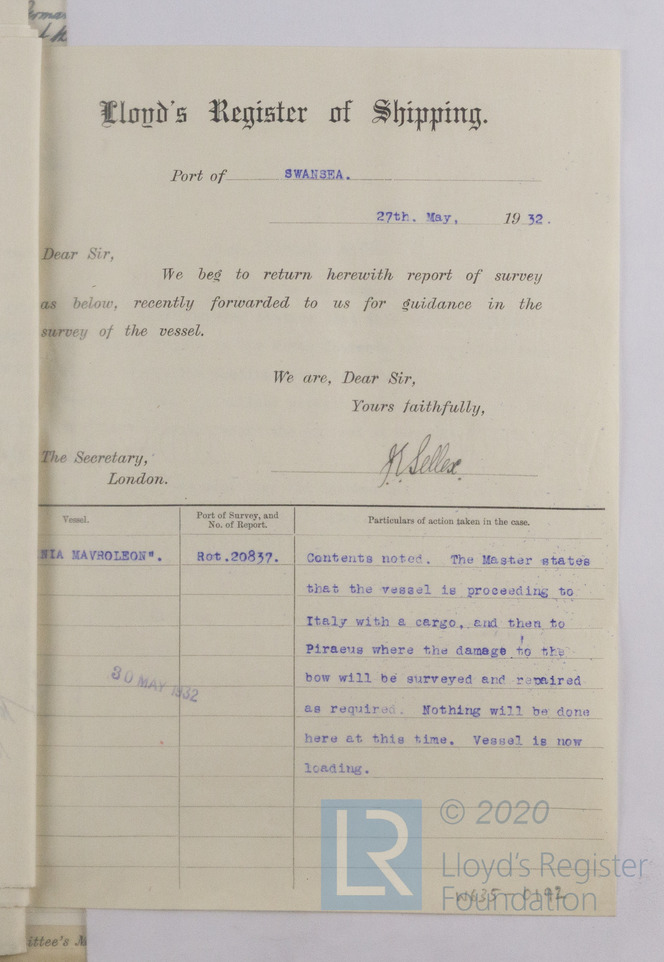 Lloyd's Register of Shipping.
Port of SWANSEA.
27th. May, 1932.
Dear Sir,
We beg to return herewith report of survey
as below, recently forwarded to us for guidance in the
survey of the vessel.
We are, Dear Sir,
Yours faithfully,
The Secretary,
London.
Sellex.
Vessel.
Port of Survey, and
No. of Report.
Particulars of action taken in the case.
NIA MAVROLEON".
Rot.20837.
Contents noted. The Master states
that the vessel is proceeding to
Italy with a cargo, and then to
Piraeus where the damage to the
bow will be surveyed and repaired
as required. Nothing will be done
here at this time. Vessel is now
loading.
30 MAY 1932
LR
© 2020
Lloyd's Register
Foundation
W635-0192
ittee's